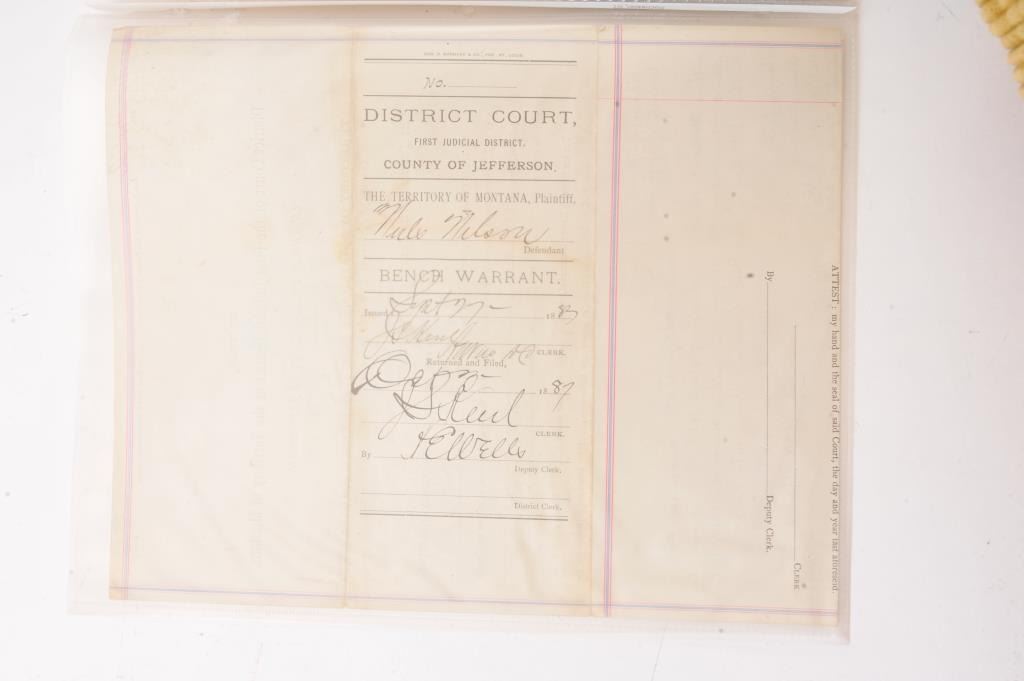 No.
DISTRICT COURT,
FIRST JUDICIAL DISTRICT,
COUNTY OF JEFFERSON.
THE TERRITORY OF MONTANA, Plaintiff,
Wilson
Defendant
BENCH WARRANT.
Issued Sept 1887
CLERK.
Returned and Filed,
1887
CLERK.
By H E Wells
Deputy Clerk.
District Clerk.
ATTEST: my hand and the seal of said Court, the day and year last aforesaid.
CLERK
By Deputy Clerk.